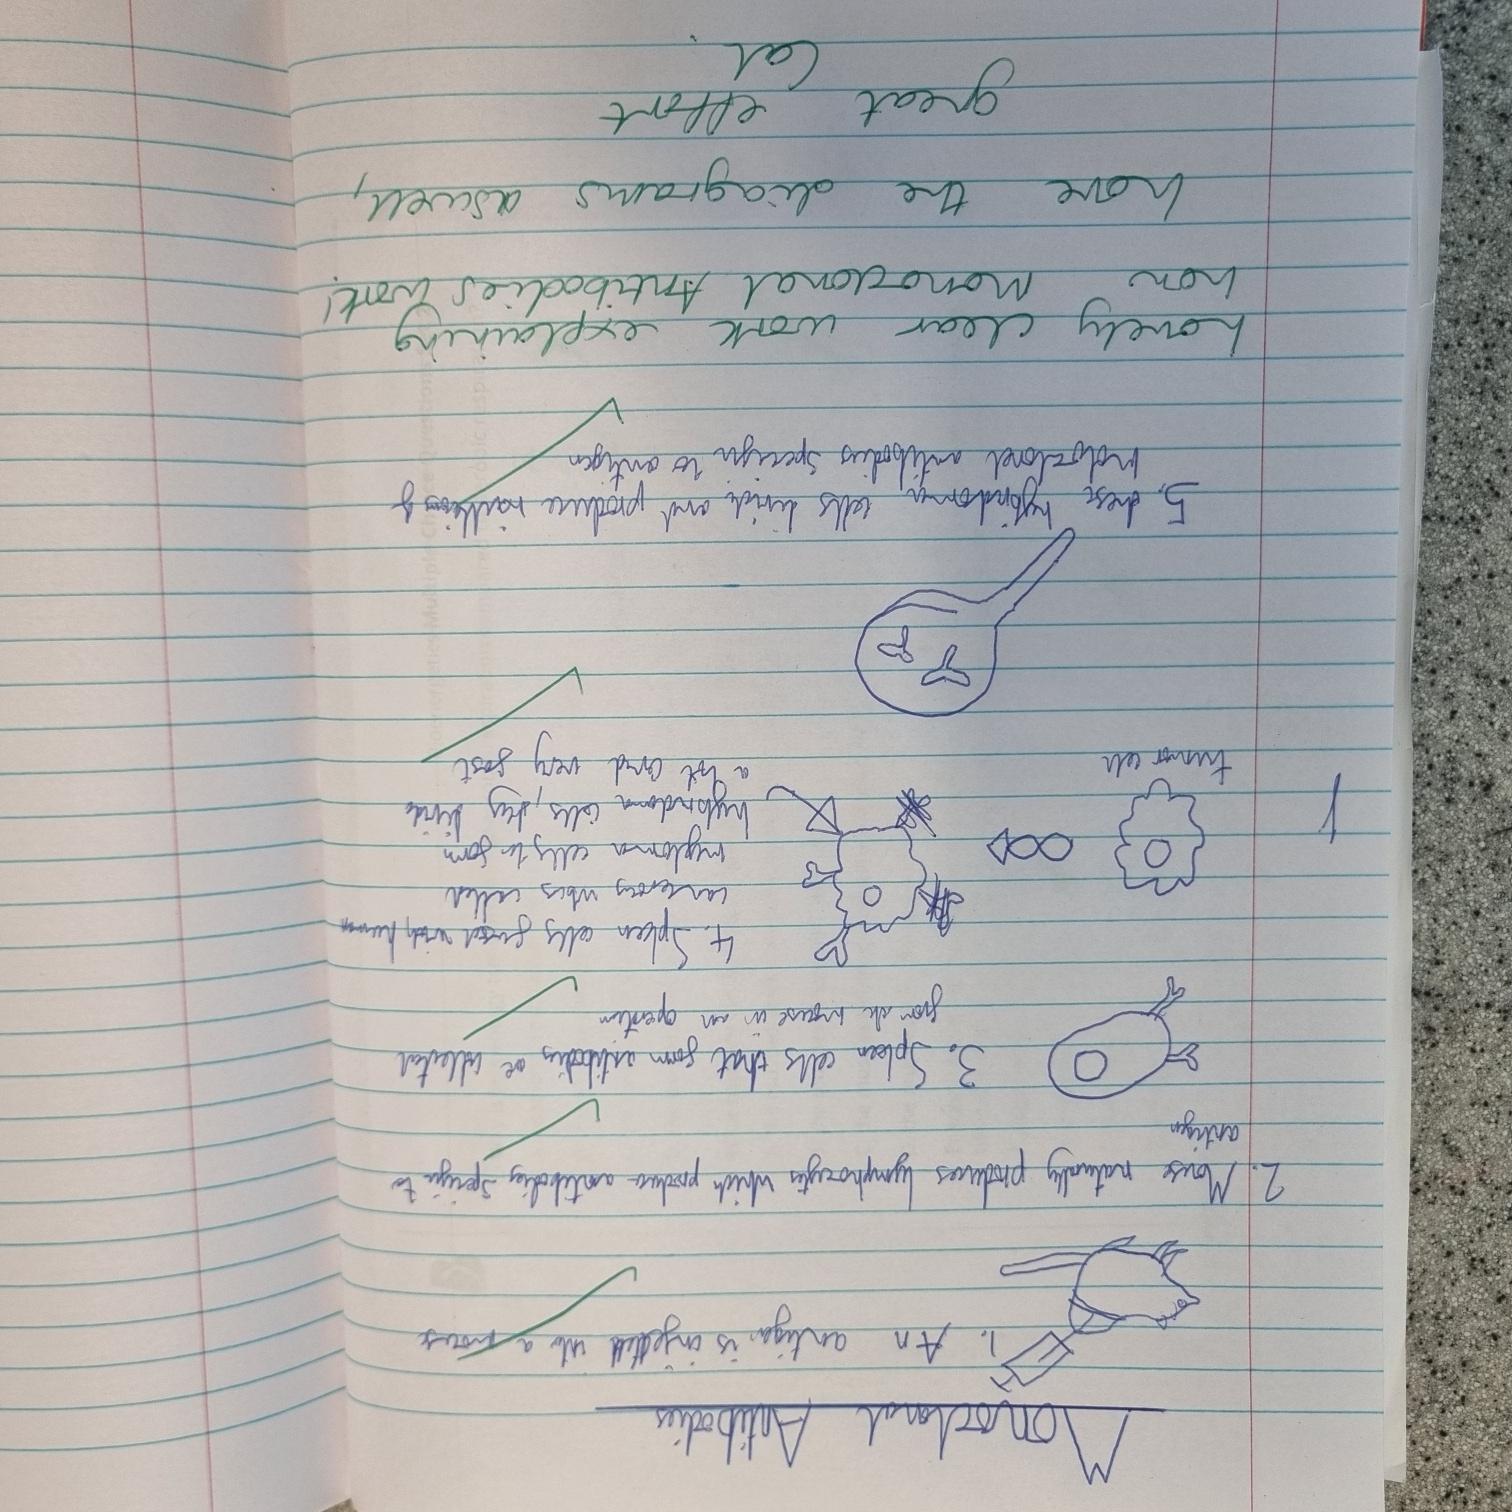 Monoclonal Antibodies
1. An antigen is injected into a mouse
2. Mouse naturally produces lymphocytes which produce antibodies specific to
antigen
3. Spleen cells that form antibodies are collected
from the mouse in an operation
4. Spleen cells fused with human
cancerous cells called
myeloma cells to form
hybridoma cells, they divide
a lot and very fast
tumor cell
5. these hybridoma cells divide and produce millions of
monoclonal antibodies specific to antigen
Lovely clear work explaining
how Monoclonal Antibodies work!
have the diagrams aswell,
great effort
Cal.